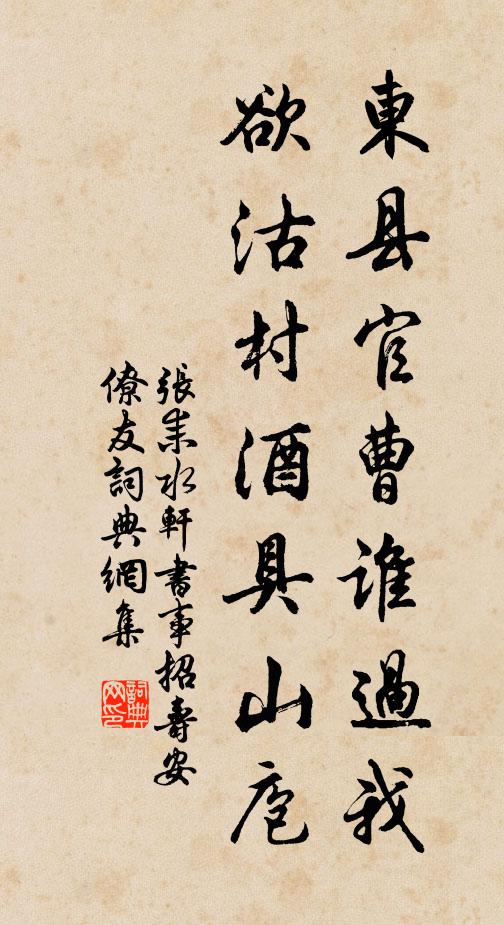 東县官曹誰過我
欲沽村酒具山庖
張耒水軒書事招壽安
僚友詞典網集
詞典网印